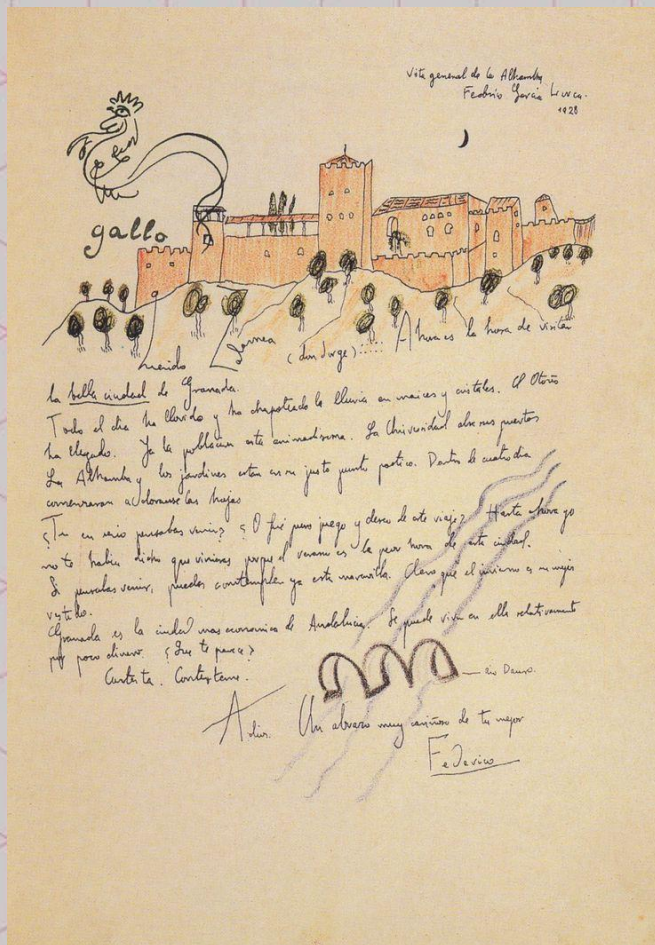 Vista general de la Alhambra
Federico García Lorca.
1928
gallo
Querido Zalamea (don Jorge):::::: Ahora es la hora de visitar
la bella ciudad de Granada.
Todo el dia ha llovido y ha chapoteado la lluvia en maices y cristales. El Otoño
ha llegado. Ya la poblacion está animadisima. La Universidad abre sus puertas
La Alhambra y los jardines estan en su justo punto poetico. Dentro de cuatro dias
comenzaran a dorarse las hojas
¿Tu en serio pensabas venir? ¿O fué puro juego y deseo de este viaje? Hasta ahora yo
no te habia dicho que vinieras porque el verano es la peor hora de esta ciudad.
Si pensabas venir, puedes contemplar ya esta maravilla. Claro que el invierno es su mejor
vestido.
Granada es la ciudad mas economica de Andalucia. Se puede vivir en ella relativamente
por poco dinero. ¿Que te parece?
Contesta. Contestame.
rio Dauro.
Adios. Un abrazo muy cariñoso de tu mejor
Federico